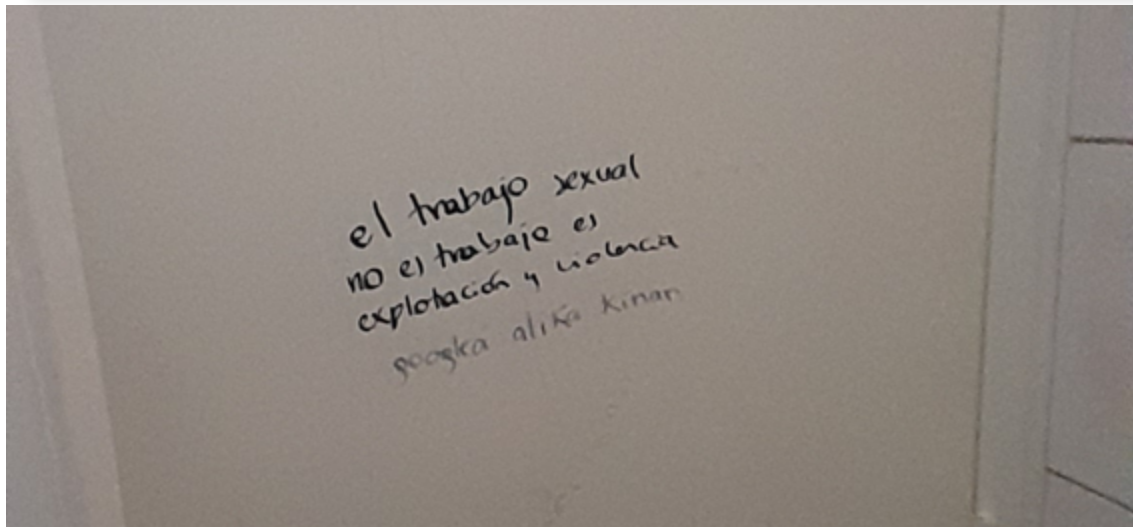 el trabajo sexual
no es trabajo es
explotación y violencia
googlea alika kinan